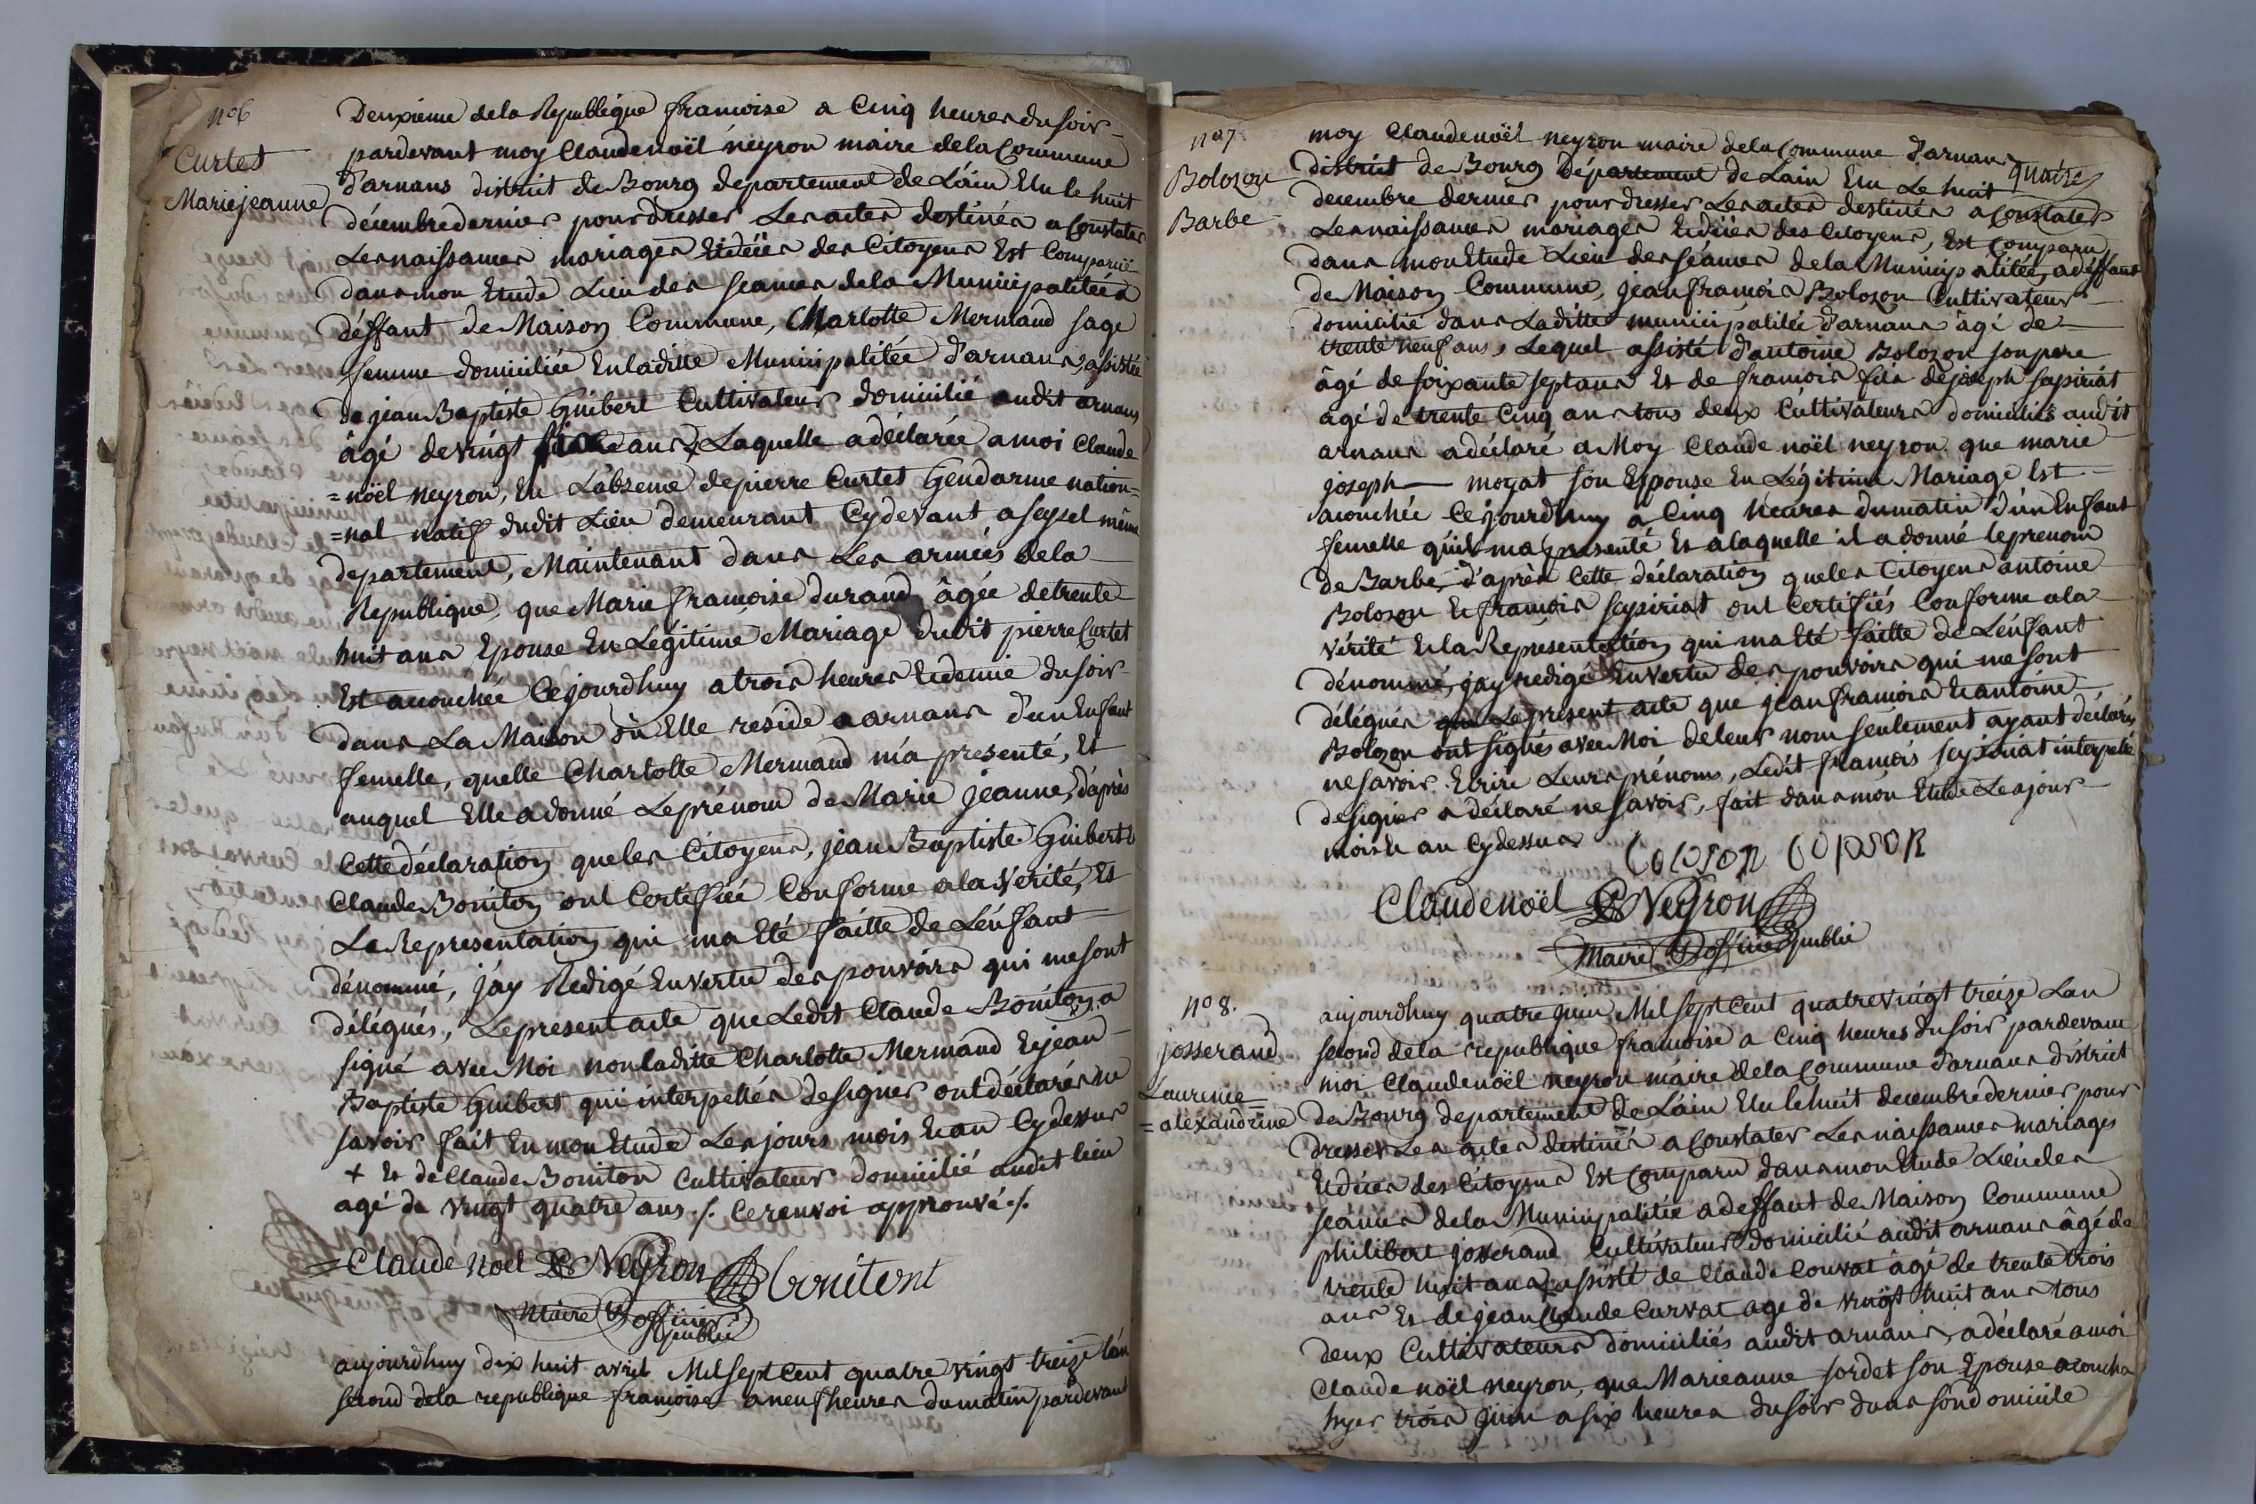 n°6
Curtet
Mariejeanne
Deuxieme dela Republique francoise a Cinq heures du soir
pardevant moy Claude noël néyron maire dela Commune
d'arnans district de Bourg departement de L'ain Elu le huit
décembre dernier pour dresser Les actes destinés a Constater
Les naissances mariages Et décès des Citoyens Est Comparüe
dans mon Etude Lieu des seances dela Municipalitée a
déffaut de Maison Commune, Charlotte Mermand sage
femme domiciliée En laditte Municipalitée d'arnans, assistée
de jean Baptiste Guibert Cultivateur domicilié audit arnans
âgé de vingt ans + Laquelle a déclarée a moi Claude
=noël neyron, En L'absence de pierre Curtet Gendarme nation=
=nal natif dudit Lieu demeurant Cydevant a seysel même
departement, Maintenant dans Les armées dela
Republique, que Marie francoise durand âgée de trente
huit ans Epouse En Légitime Mariage dudit pierre Curtet
Est acouchée Cejourdhuy a trois heures Et demie du soir
dans La Maison où Elle reside a arnans d'un Enfant
femelle, quelle Charlotte Mermand m'a presenté, Et
auquel Elle a donné Le prénom de Marie jeanne, d'après
Cette déclaration que les Citoyens, jean Baptiste Guibert Et
Claude Boniton ont Certifiée Conforme a la verité, Et
La Representation qui ma Eté faitte de L'énfant
dénommé, j'ay Redigé En vertu des pouvoirs qui me sont
délégués, Le present acte que Ledit Claude Boniton a
signé avec Moi non laditte Charlotte Mermand Et jean
Baptiste Guibert qui interpellés de signer ont déclarés ne
savoir fait En mon Etude Les jours mois Et an Cy dessus
+ Et de Claude Boniton Cultivateur domicilié audit lieu
agé de vingt quatre ans ./. Ce renvoi approuvé ./.
Claude Noel Neyron Bonitont
Maire Et officier
public
aujourdhuy dix huit avril Mil sept Cent quatre vingt treize l'an
second dela republique françoise a neuf heures du matin pardevant
n°7
Bolozon
Barbe
quatre
moy Claude noël neyron maire dela Commune d'arnans
district de Bourg Département de Lain Elu Le huit
decembre dernier pour dresser Les actes destinés a Constater
Les naissances mariages Et décès des Citoyens, Est Comparu
dans mon Etude Lieu des séances dela Municipalitée, a déffaut
de Maison Commune, jean francois Bolozon Cultivateur
domicilié dans Laditte municipalitée d'arnans âgé de
trente neuf ans, Lequel assisté d'antoine Bolozon son pere
âgé de soixante sept ans Et de francois fils de joseph
agé de trente Cinq ans tous deux Cultivateurs domiciliés audit
arnans a déclaré a Moy Claude noël neyron que marie
joseph moyat son Epouse En Légitime Mariage Est
acouchée Cejourdhuy a Cinq heures du matin d'un Enfant
femelle qu'il ma presenté Et a laquelle il a donné le prenom
de Barbe, d'après Cette déclaration que les Citoyens antoine
Bolozon Et francois ont Certifiés Conforme a la
vérité Et la Representation qui ma Eté faitte de L'énfant
dénommé, jay redigé En vertu des pouvoirs qui me sont
délégués Le present acte que jean francois Et antoine
Bolozon ont signés avec Moi de leur nom seulement ayant déclarés
ne savoir Ecrire Leurs prénoms, Ledit francois interpellé
de signer a déclaré ne savoir, fait dans mon Etude Les jour
mois Et an Cydessus
Claude noël Neyron
Maire Et officier public
n°8.
josserand
Laurence
=alexandrine
aujourdhuy quatre juin Mil sept Cent quatre vingt treize Lan
second dela republique francoise a Cinq heures du soir pardevant
moi Claude noël neyron maire dela Commune d'arnans district
de Bourg departement de L'ain Elu le huit decembre dernier pour
dresser Les actes destinés a Constater Les naissances mariages
Et décès des Citoyens Est Comparu dans mon Etude Lieu des
séances dela Municipalitée a deffaut de Maison Commune
philibert josserand Cultivateur domicilié audit arnans âgé de
trente huit ans, assisté de Claude Convat âgé de trente trois
ans Et de jean Claude Curvat age de vingt huit ans tous
deux Cultivateurs domiciliés audit arnans, a déclaré a moi
Claude noël neyron, que Marieanne sordet son Epouse acoucha
hyer trois juin a six heures du soir dans son domicile